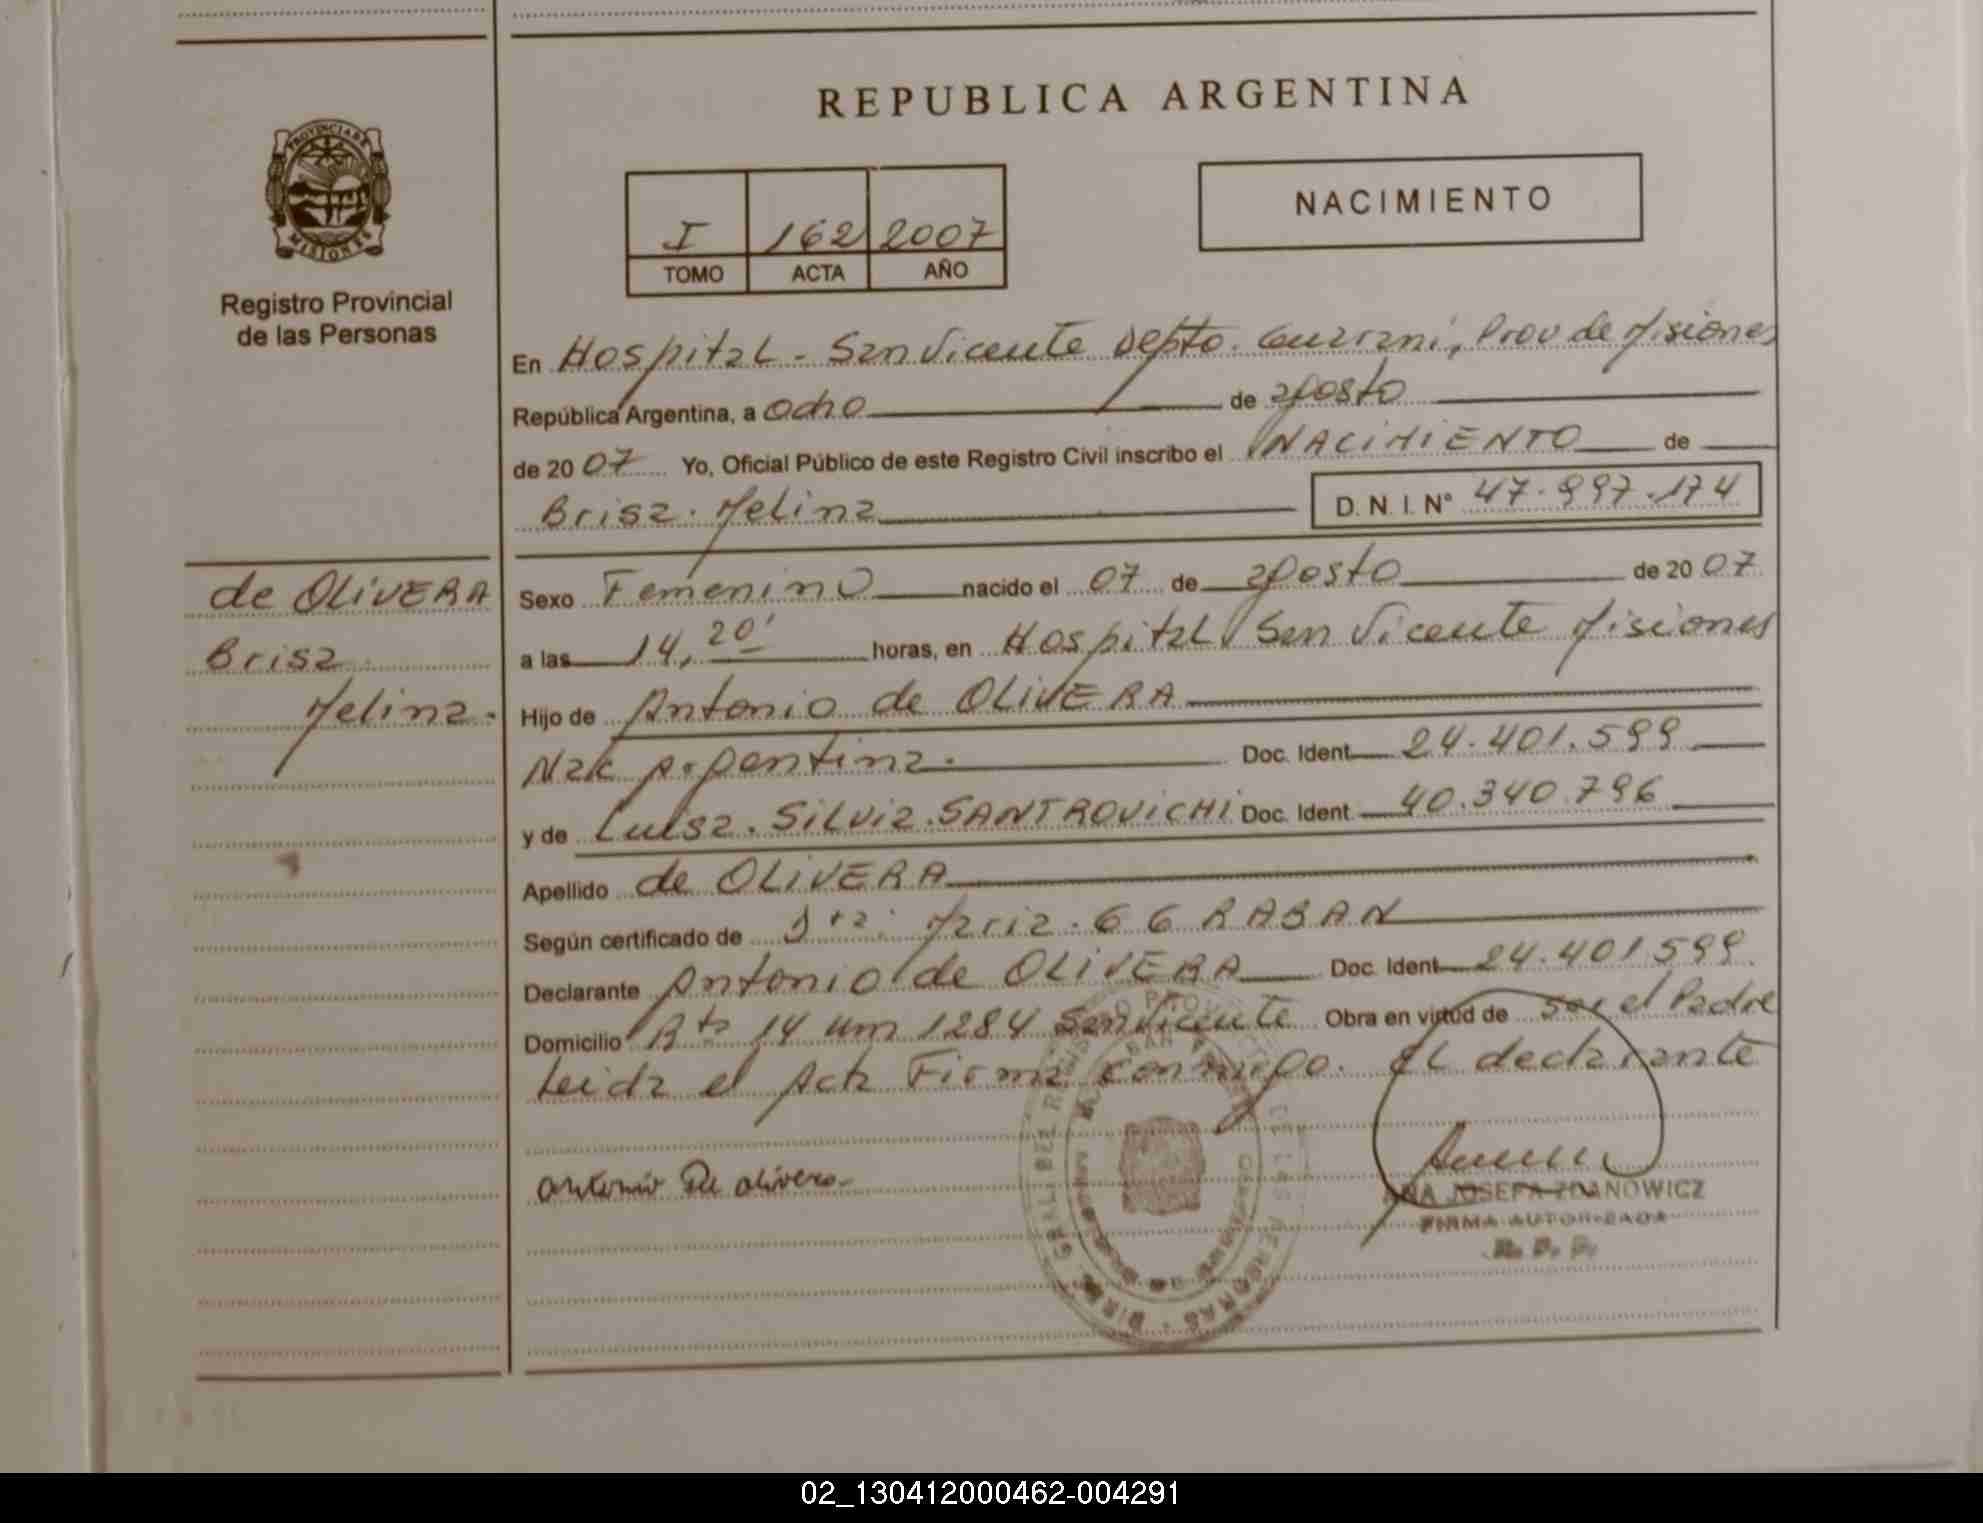 REPUBLICA ARGENTINA
PROVINCIA DE
MISIONES
Registro Provincial
de las Personas
I 162 2007
TOMO ACTA AÑO
NACIMIENTO
En Hospital - San Vicente Depto. Guarani, Prov de Misiones
República Argentina, a ocho de agosto
de 2007 Yo, Oficial Público de este Registro Civil inscribo el NACIMIENTO de
Brisa. Melina D. N. I. N° 47.997.174
de OLIVERA
Brisa
Melina.
Sexo Femenino nacido el 07 de agosto de 2007
a las 14,20' horas, en Hospital San Vicente Misiones
Hijo de Antonio de OLIVERA
Nac Argentina. Doc. Ident. 24.401.599
y de Luisa. Silvia. SANTROVICHI Doc. Ident. 40.340.796
Apellido de OLIVERA
Según certificado de Dra: Maria. G G RABAN
Declarante Antonio de OLIVERA Doc. Ident. 24.401.599.
Domicilio Rta 14 km 1284 San Vicente Obra en virtud de ser el Padre
Leida el Acta Firma conmigo. el declarante
antonio De olivera
ANA JOSEFA ZDANOWICZ
FIRMA AUTORIZADA
02_130412000462-004291